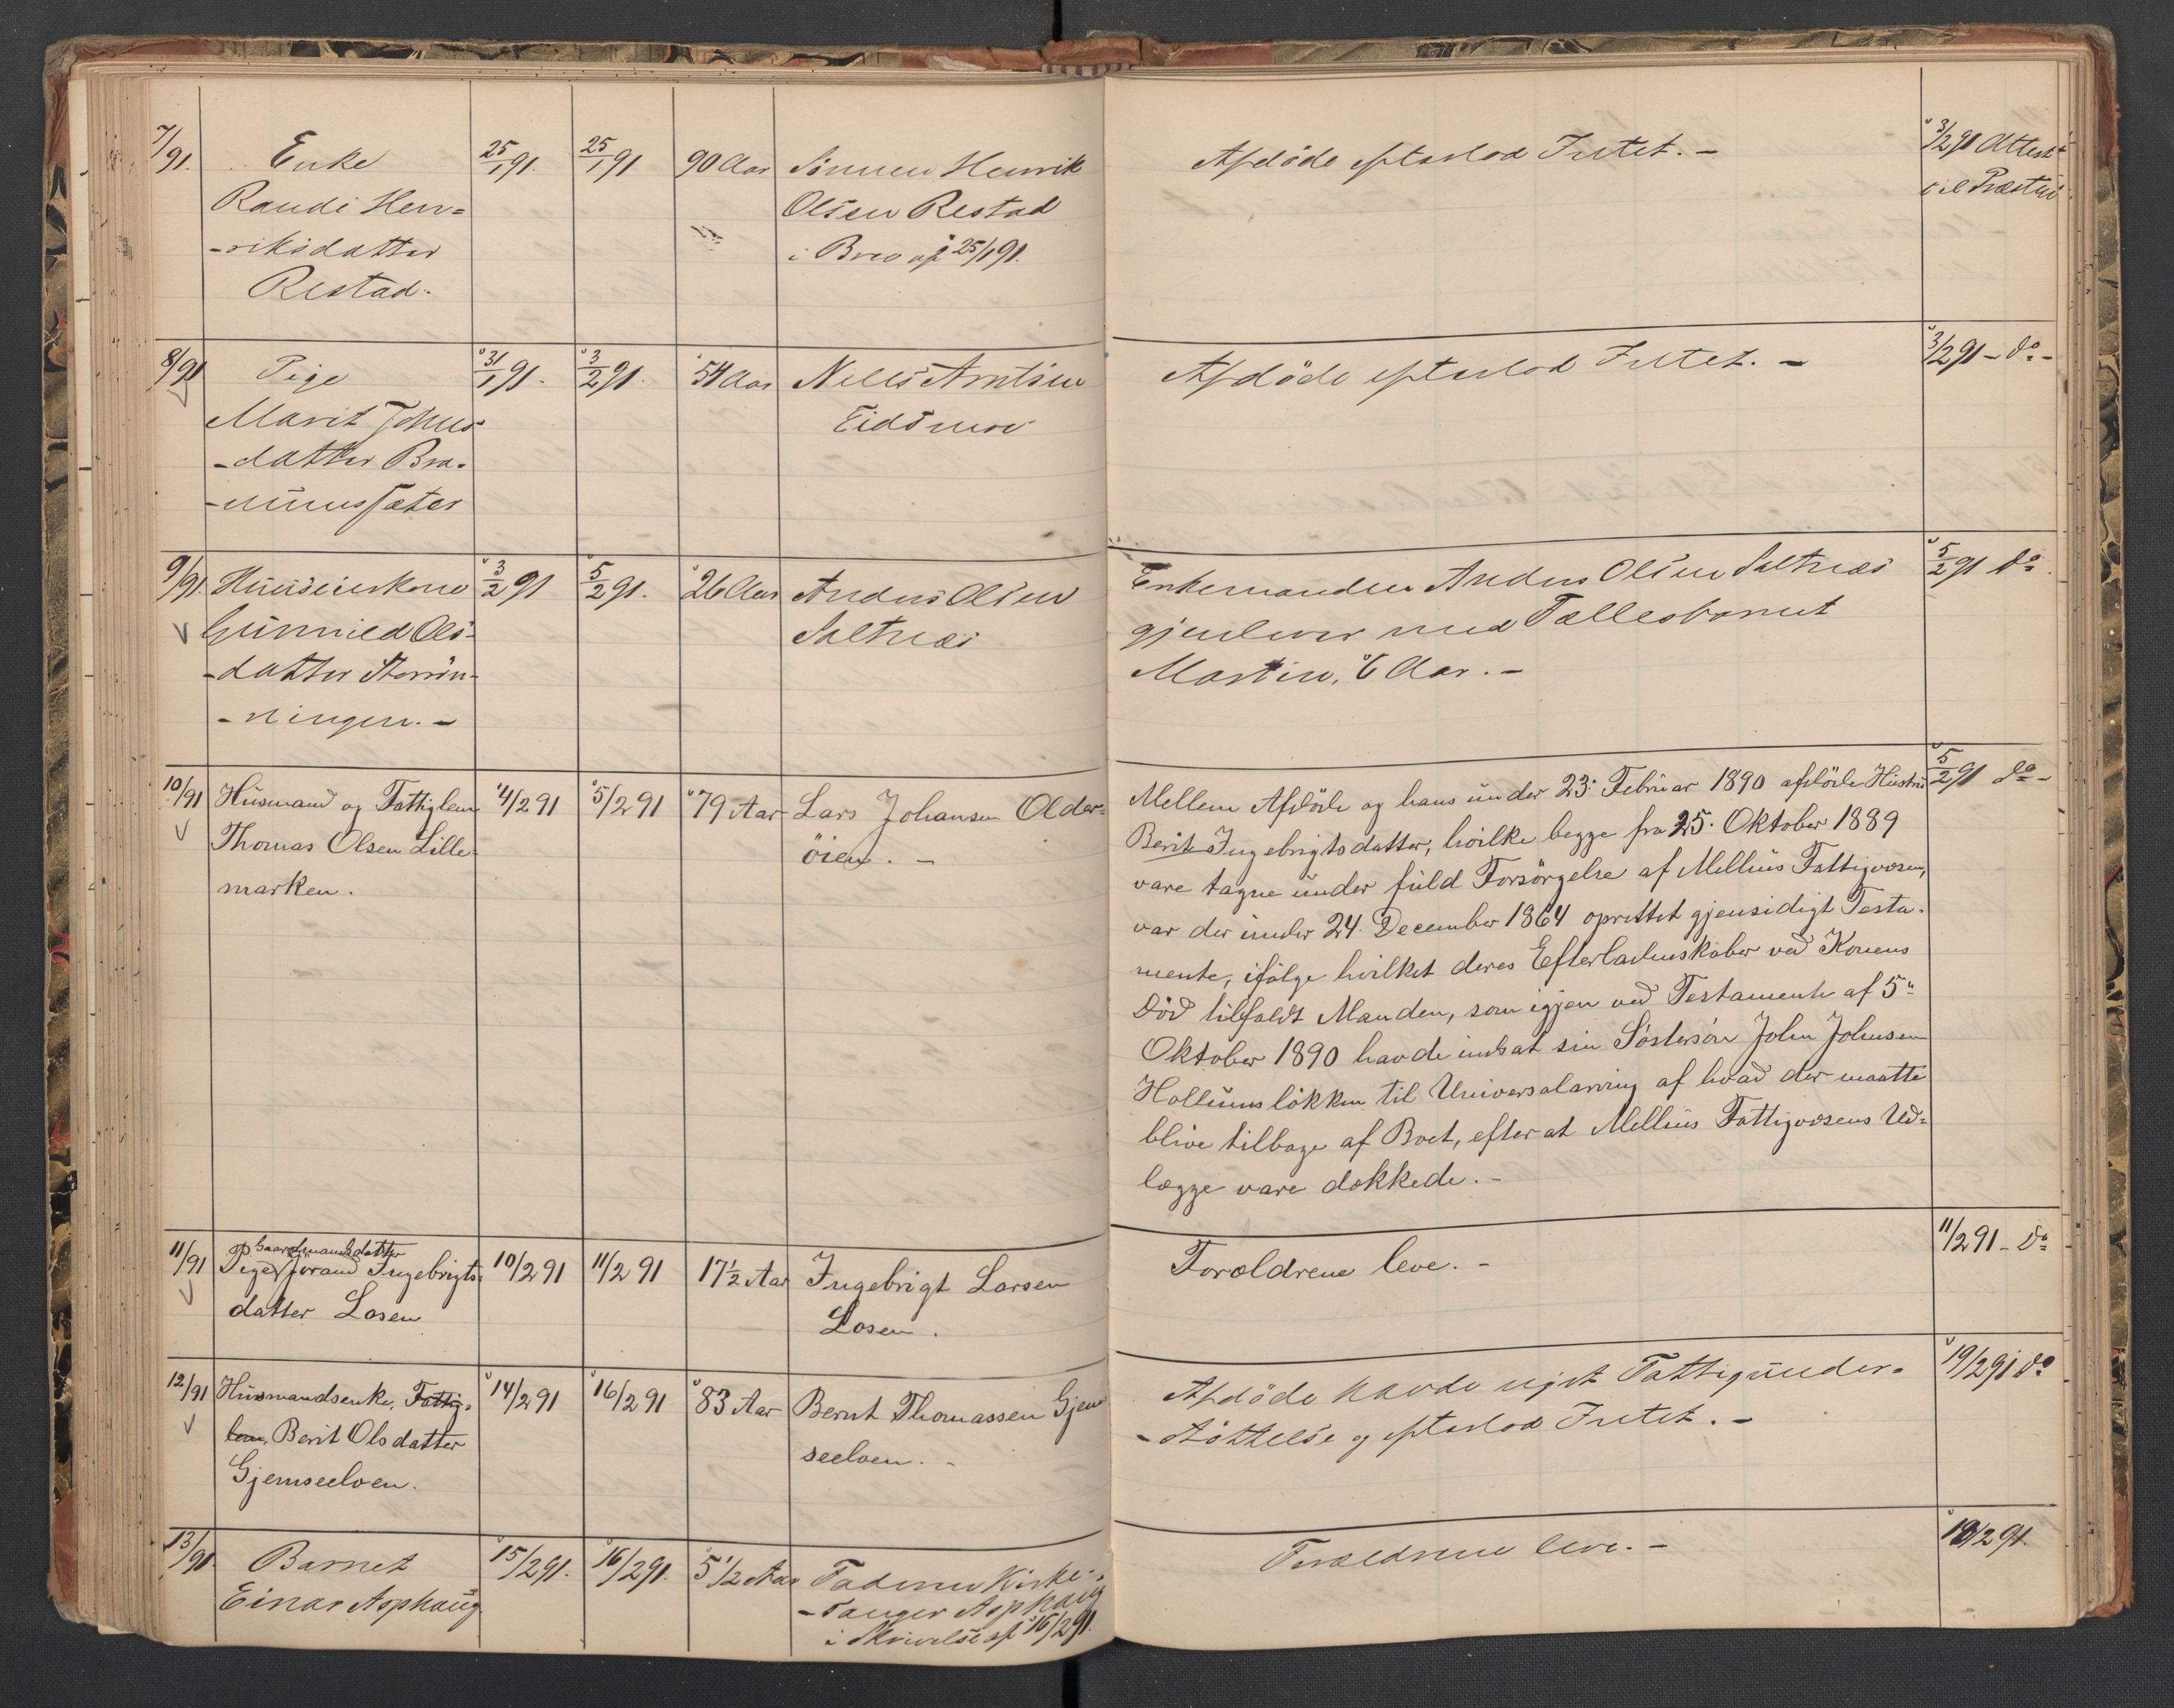 7/91. Enke 25/1 91. 25/1 91 90 Aar Sønnen Henrik Afdöde efterlod Intet. - 3/2 91 Attest
Randi Hen= Olsen Restad til Præsten
-riksdatter i Brev af 25/1 91.
Restad.
8/91 Pige 31/1 91. 3/2 91. 54 Aar Nils Arntsen Afdöde efterlod Intet. - 3/2 91 - do -
Marit Johns Eidsmo
-datter Bra-
-munssæter
9/91. Huusmkone 3/2 91 5/2 91. 26 Aar Anders Olsen Enkemanden Anders Olsen Saltnes 5/2 91 do.
Gunnild Ols- Saltnes gjenlever med Fællesbarnet
-datter Storrön- Martin, 6 Aar. -
-ningen. -
10/91 Husmand og Fattiglem 4/2 91 5/2 91 79 Aar Lars Johansen Older- Mellem Afdöde og hans under 23. Februar 1890 afdöde Hustru 5/2 91 do -
Thomas Olsen Lille- öien. - Berit Ingebrigtsdatter, hvilke begge fra 25. Oktober 1889
marken. vare tagne under fuld Forsörgelse af Melhus Fattigvæsen,
var der under 24. December 1864 oprettet gjensidigt Testa-
mente, ifölge hvilket deres Efterladenskaber ved Konens
Död tilfaldt Manden, som igjen ved Testamente af 5.
Oktober 1890 havde indsat sin Söstersön John Johnsen
Hollumslökken til Universalarving af hvad der maatte
blive tilbage af Boet, efter at Melhus Fattigvæsens Ud-
lægge vare dækkede. -
11/91 Pige Gaardmandsdatter Jörand Ingebrigts- 10/2 91 11/2 91 17 1/2 Aar Ingebrigt Larsen Forældrene leve. - 11/2 91 - do
datter Losen Losen.
12/91 Husmandsenke, Fattig- 14/2 91 16/2 91 83 Aar Bernt Thomassen Gjem Afdöde havde nydt Fattigunder- 19/2 91 do
lem, Berit Olsdatter seelven. - -støttelse og efterlod Intet. -
Gjemseelven.
13/91. Barnet 15/2 91. 16/2 91. 5 1/2 Aar Faderen Kirke- Forældrene leve. - 19/2 91.
Einar Asphaug -sanger Asphaug
i Skrivelse af 16/2 91.